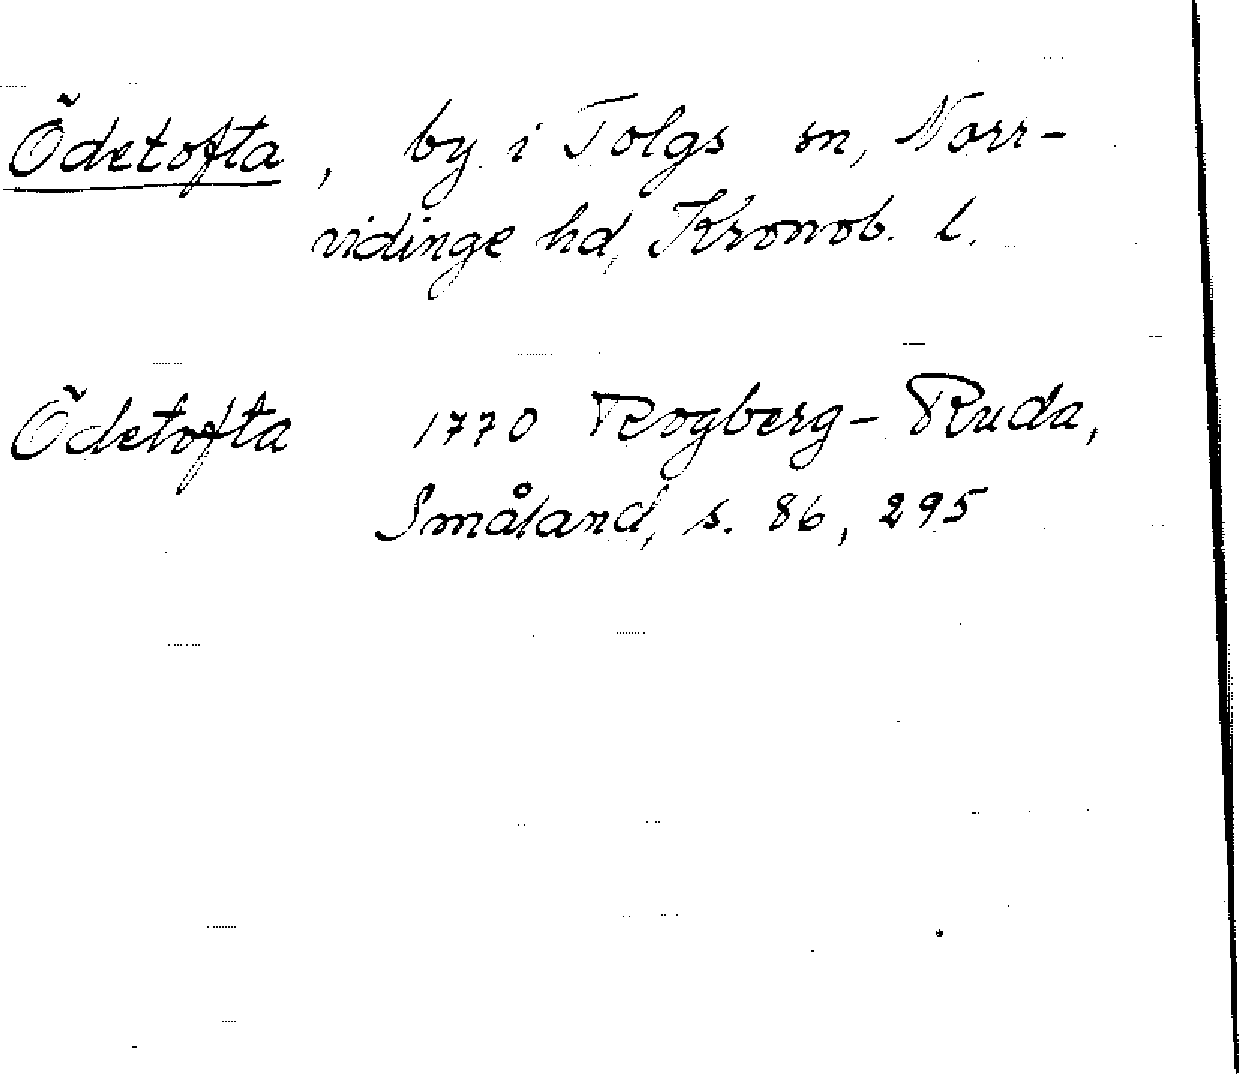 Ödetofta, by i Tolgs sn, Norr-
vidinge hd, Kronob. l.
Ödetofta 1770 Rogberg-Ruda,
Småland, s. 86, 295